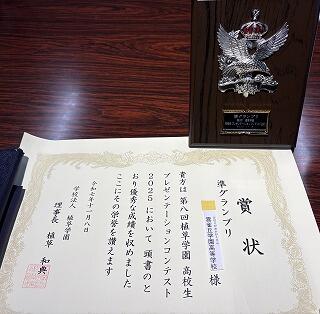 準グランプリ
賞状
準グランプリ
雲雀丘学園高等学校 様
貴方は 第八回植草学園 高校生
プレゼンテーションコンテスト
2025 において 頭書のと
おり優秀な成績を収めました
ここにその栄誉を讃えます
令和七年十一月八日
学校法人 植草学園
理事長 植草 和典